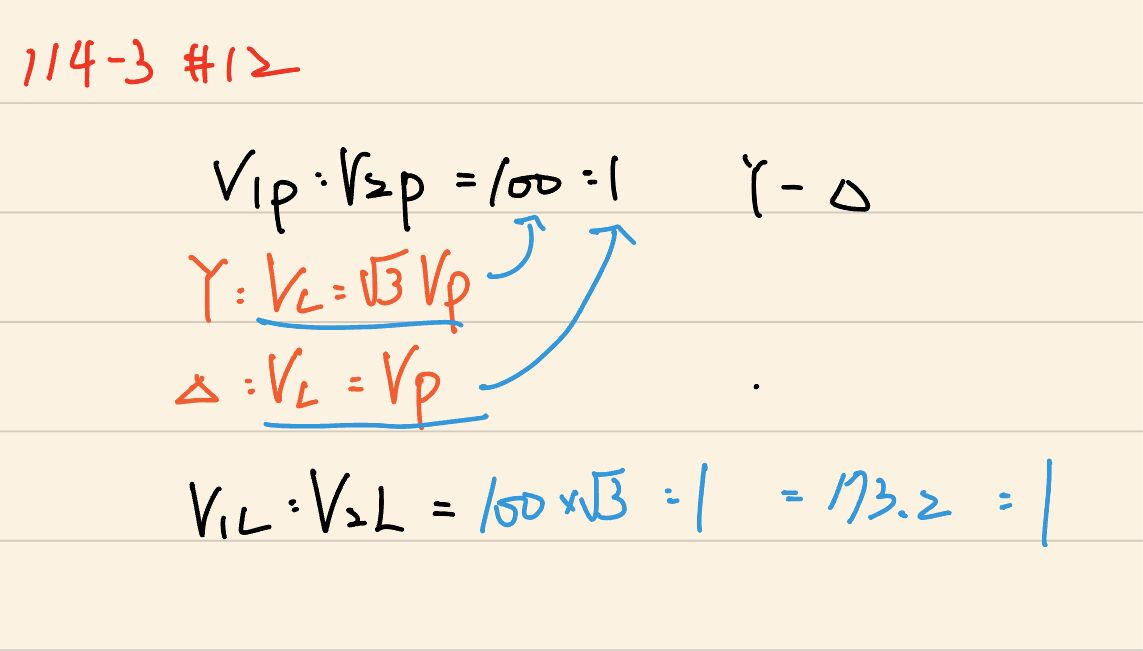 114-3 #12
V1p : V2p = 100 : 1 Y - Δ
Y : VL = √3 Vp
Δ : VL = Vp
V1L : V2L = 100 × √3 : 1 = 173.2 : 1